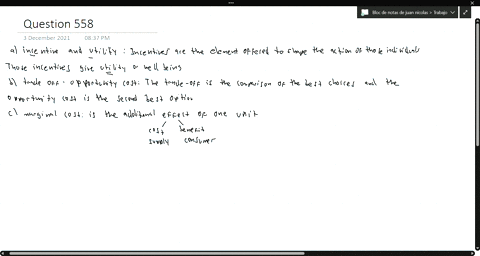 Bloc de notas de juan nicolas > Trabajo
Question 558
3 December 2021 08:37 PM
a) incentive and utility : Incentives are the element offered to shape the action of those individuals
Those incentives give utility or well being
b) trade off - opportunity cost: The trade-off is the comparison of the best choices and the
opportunity cost is the second best option
c) marginal cost: is the additional effect of one unit
cost benefit
supply consumer